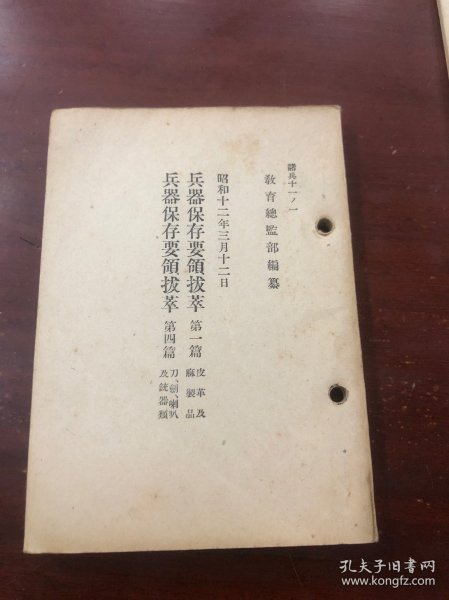 諸兵十一ノ一
教育總監部編纂
昭和十二年三月十二日
兵器保存要領拔萃 第一篇 皮革及麻製品
兵器保存要領拔萃 第四篇 刀、劍、喇叭及銃器類
孔夫子旧书网
www.kongfz.com